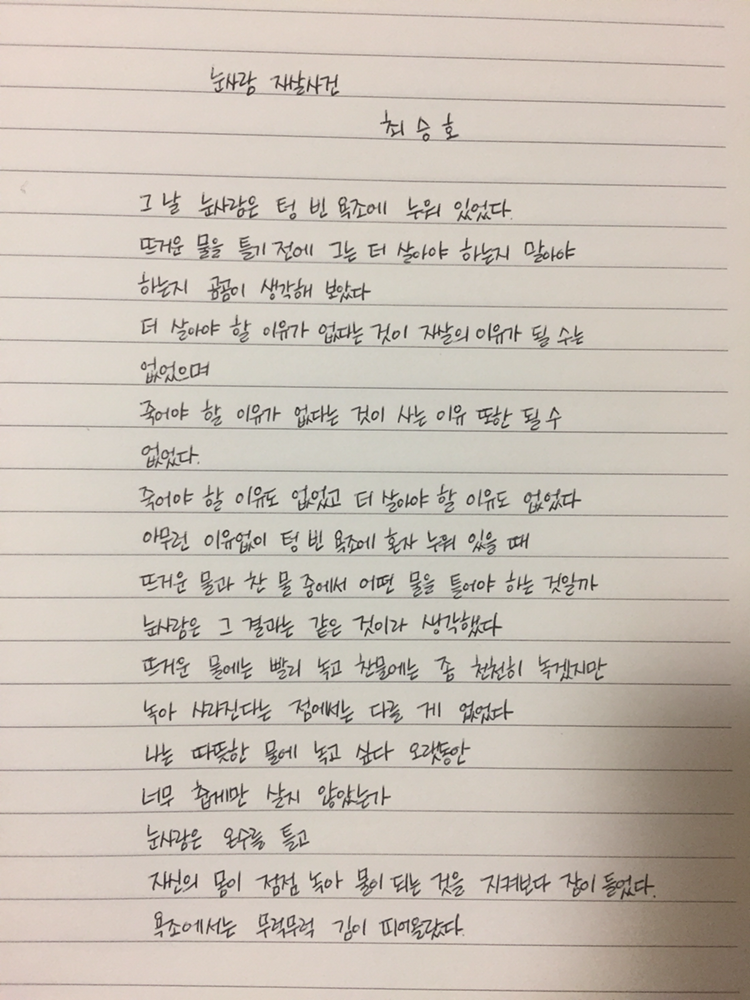 눈사람 자살사건
최승호
그 날 눈사람은 텅 빈 욕조에 누워 있었다.
뜨거운 물을 틀기 전에 그는 더 살아야 하는지 말아야
하는지 곰곰이 생각해 보았다
더 살아야 할 이유가 없다는 것이 자살의 이유가 될 수는
없었으며
죽어야 할 이유가 없다는 것이 사는 이유 또한 될 수
없었다.
죽어야 할 이유도 없었고 더 살아야 할 이유도 없었다
아무런 이유없이 텅 빈 욕조에 혼자 누워 있을 때
뜨거운 물과 찬 물 중에서 어떤 물을 틀어야 하는 것일까
눈사람은 그 결과는 같은 것이라 생각했다
뜨거운 물에는 빨리 녹고 찬물에는 좀 천천히 녹겠지만
녹아 사라진다는 점에서는 다를 게 없었다
나는 따뜻한 물에 녹고 싶다 오랫동안
너무 춥게만 살지 않았는가
눈사람은 온수를 틀고
자신의 몸이 점점 녹아 물이 되는 것을 지켜보다 잠이 들었다.
욕조에서는 무럭무럭 김이 피어올랐다.